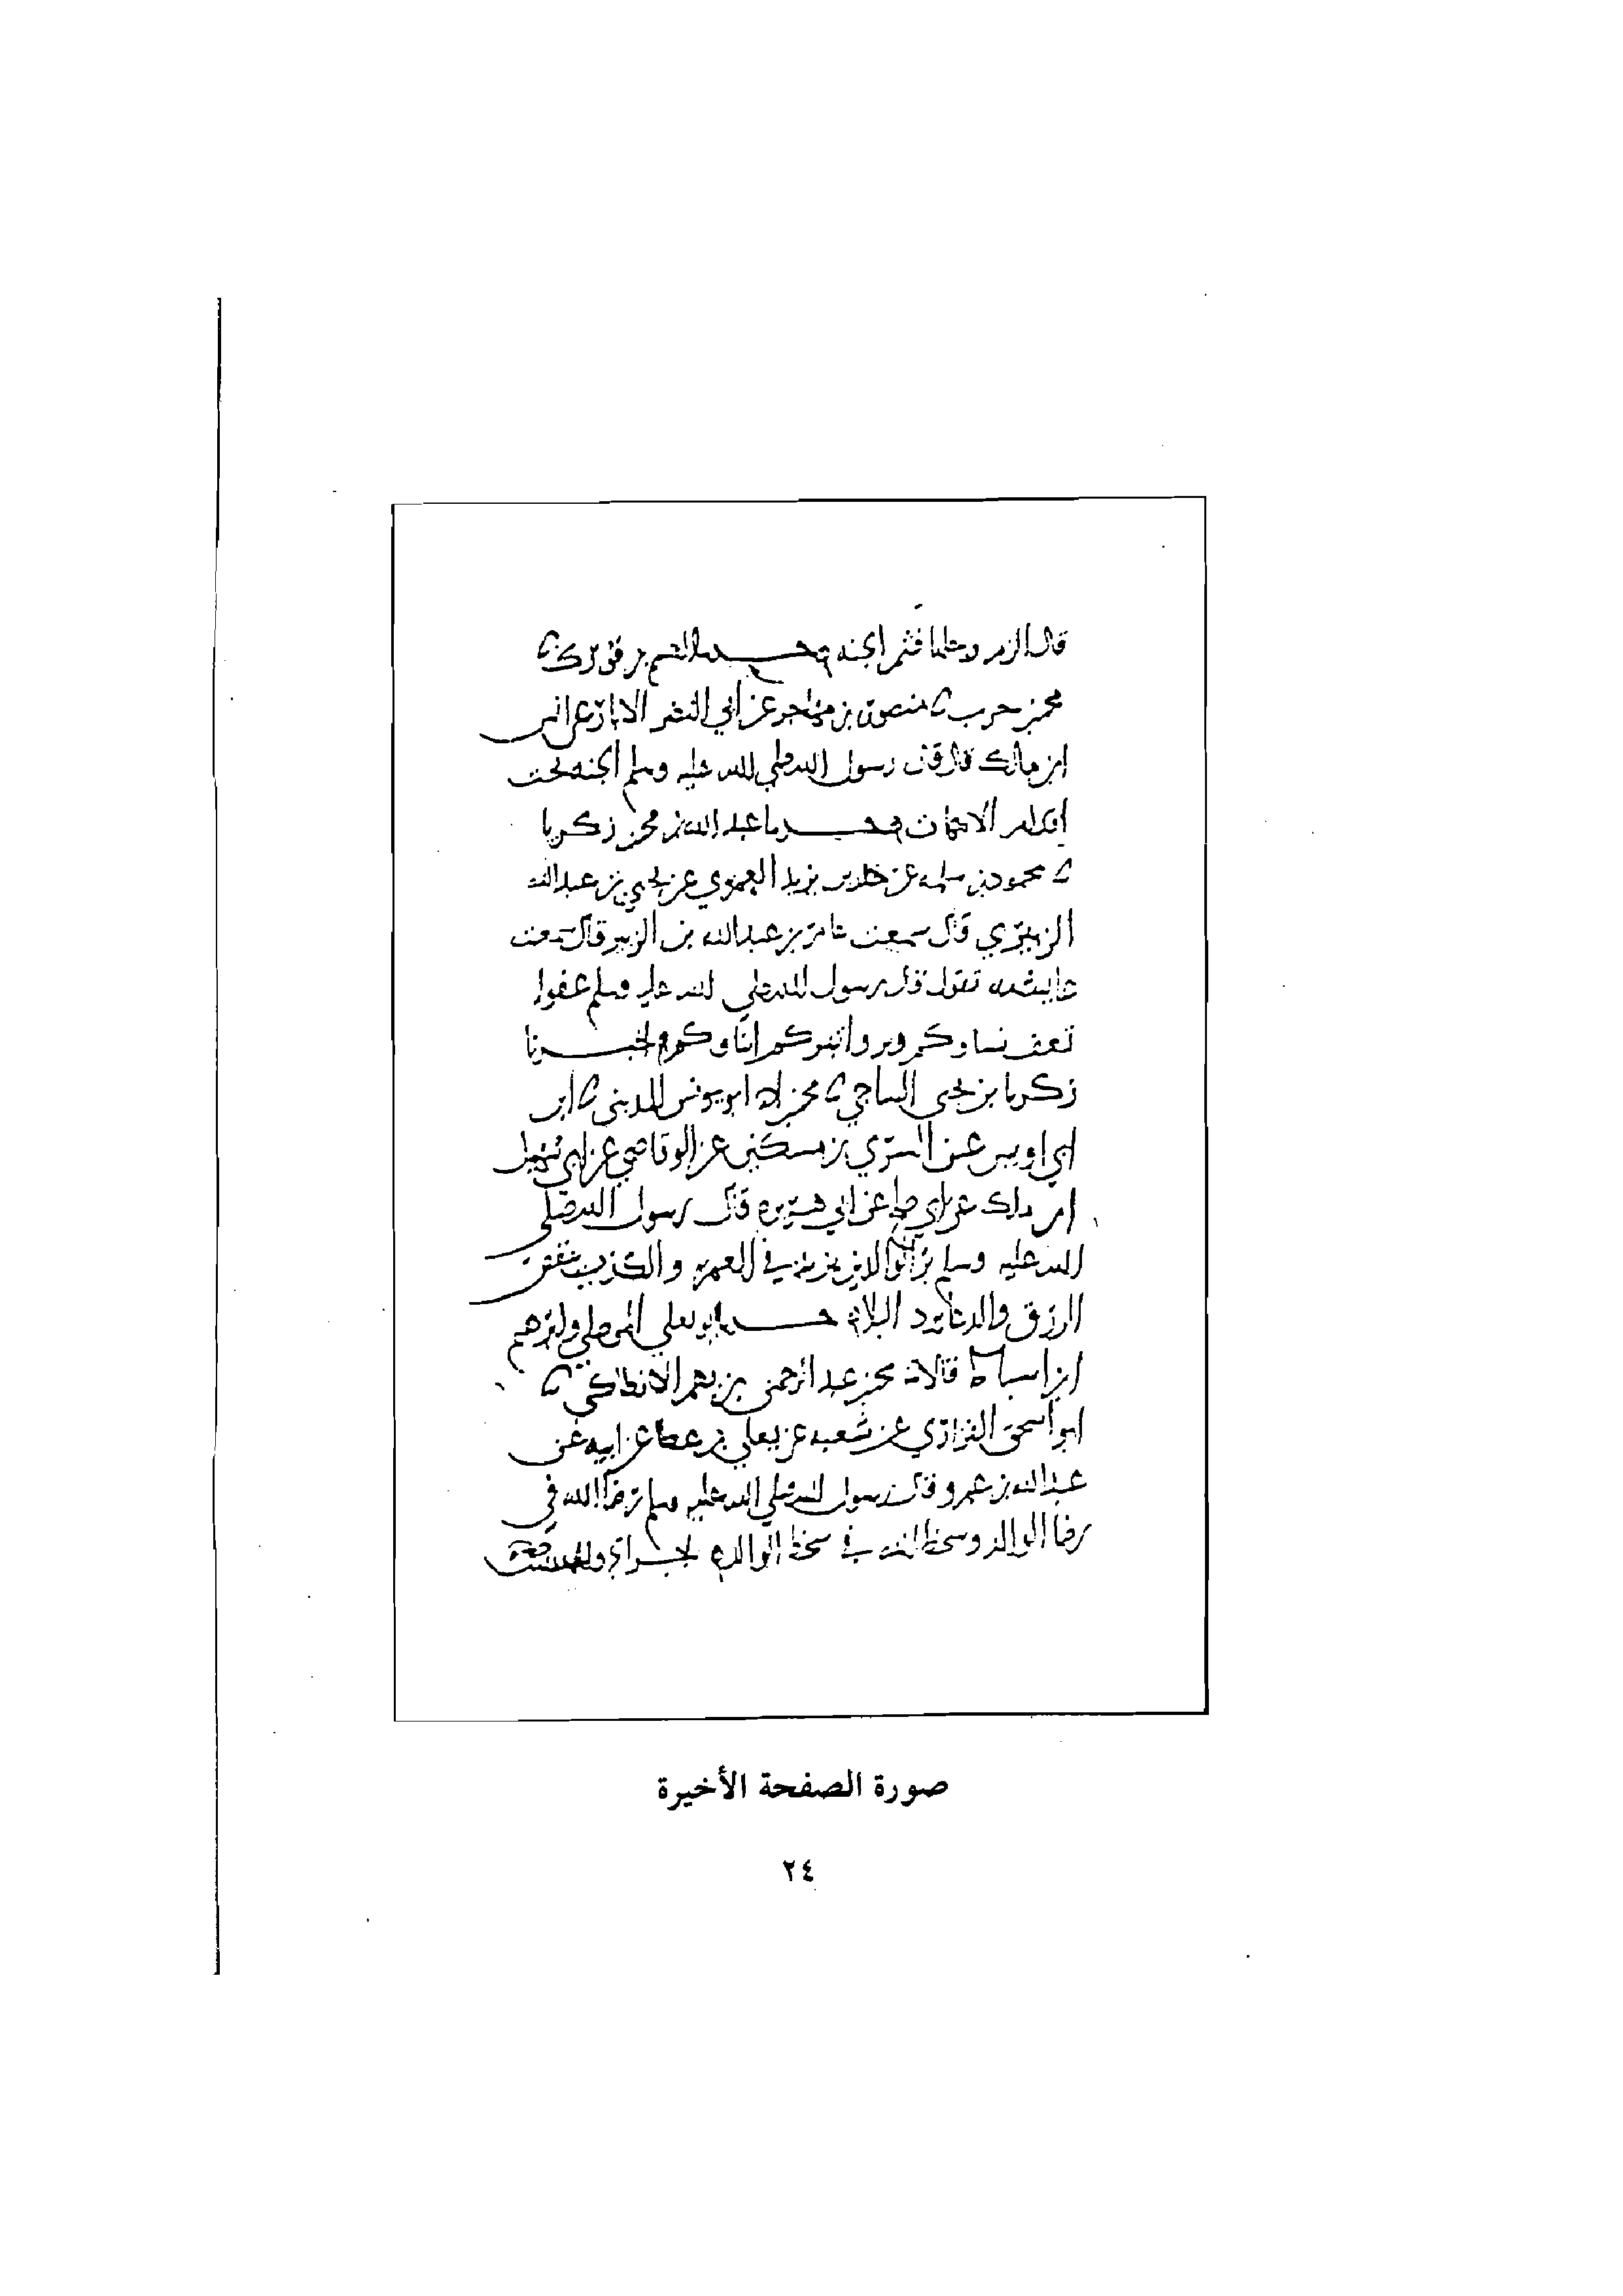 قال الزم رجلها فثم الجنه حدثنا القسم بن فورك نا
محمد بن حرب نا منصور بن مهاجر عن ابي النضر الابار عن انس
ابن مالك قال قال رسول الله صلى الله عليه وسلم الجنه تحت
اقدام الامهات حدثنا عبدالله بن محمد بن زكريا
نا محمود بن عن خلد بن يزيد العمري عن يحيى بن عبدالله
الزبيري قال سمعت عامر بن عبدالله بن الزبير قال سمعت
عايشه تقول قال رسول الله صلى الله عليه وسلم عفوا
تعف نساوكم وبروا تبركم ابناوكم اخبرنا
زكريا بن يحيى الساجي نا محمد ابو يونس المديني نا ابن
ابي اويس عن السري بن مسكين عن الوقاصي عن ابي سهيل
ابن مالك عن ابي صالح عن ابي هريره قال رسول الله صلى
الله عليه وسلم بر الوالدين يزيد في العمر والكذب ينقص
الرزق والدعا يرد البلا حدثنا ابو يعلى الموصلي وابرهيم
ابن اسباط قالا نا محمد بن عبد الرحمن بن سهم الانطاكي نا
ابو اسحق الفزاري عن شعبه عن يعلى بن عطا عن ابيه عن
عبدالله بن عمرو قال رسول الله صلى الله عليه وسلم رضا الله في
رضا الوالد وسخط الله في سخط الوالد
صورة الصفحة الأخيرة
٢٤